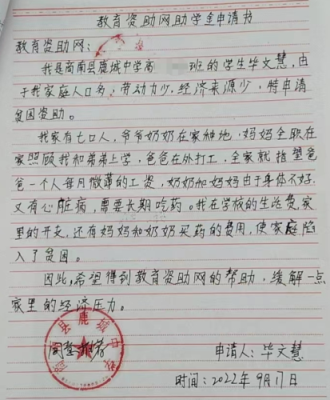 教育资助网助学金申请书
教育资助网：
我是商南县鹿城中学高 班的学生毕文慧，由
于我家庭人口多，劳动力少，经济来源少，特申请
贫困资助。
我家有七口人，爷爷奶奶在家种地，妈妈全职在
家照顾我和弟弟上学，爸爸在外打工，全家就指望爸
爸一个人每月微薄的工资，奶奶和妈妈由于身体不好，
又有心脏病，需要长期吃药。我在学校的生活费，家
里的开支，还有妈妈和奶奶买药的费用，使家庭陷
入了贫困。
因此，希望得到教育资助网的帮助，缓解一点
家里的经济压力。
县鹿城中
申请人：毕文慧
时间：2022年9月17日